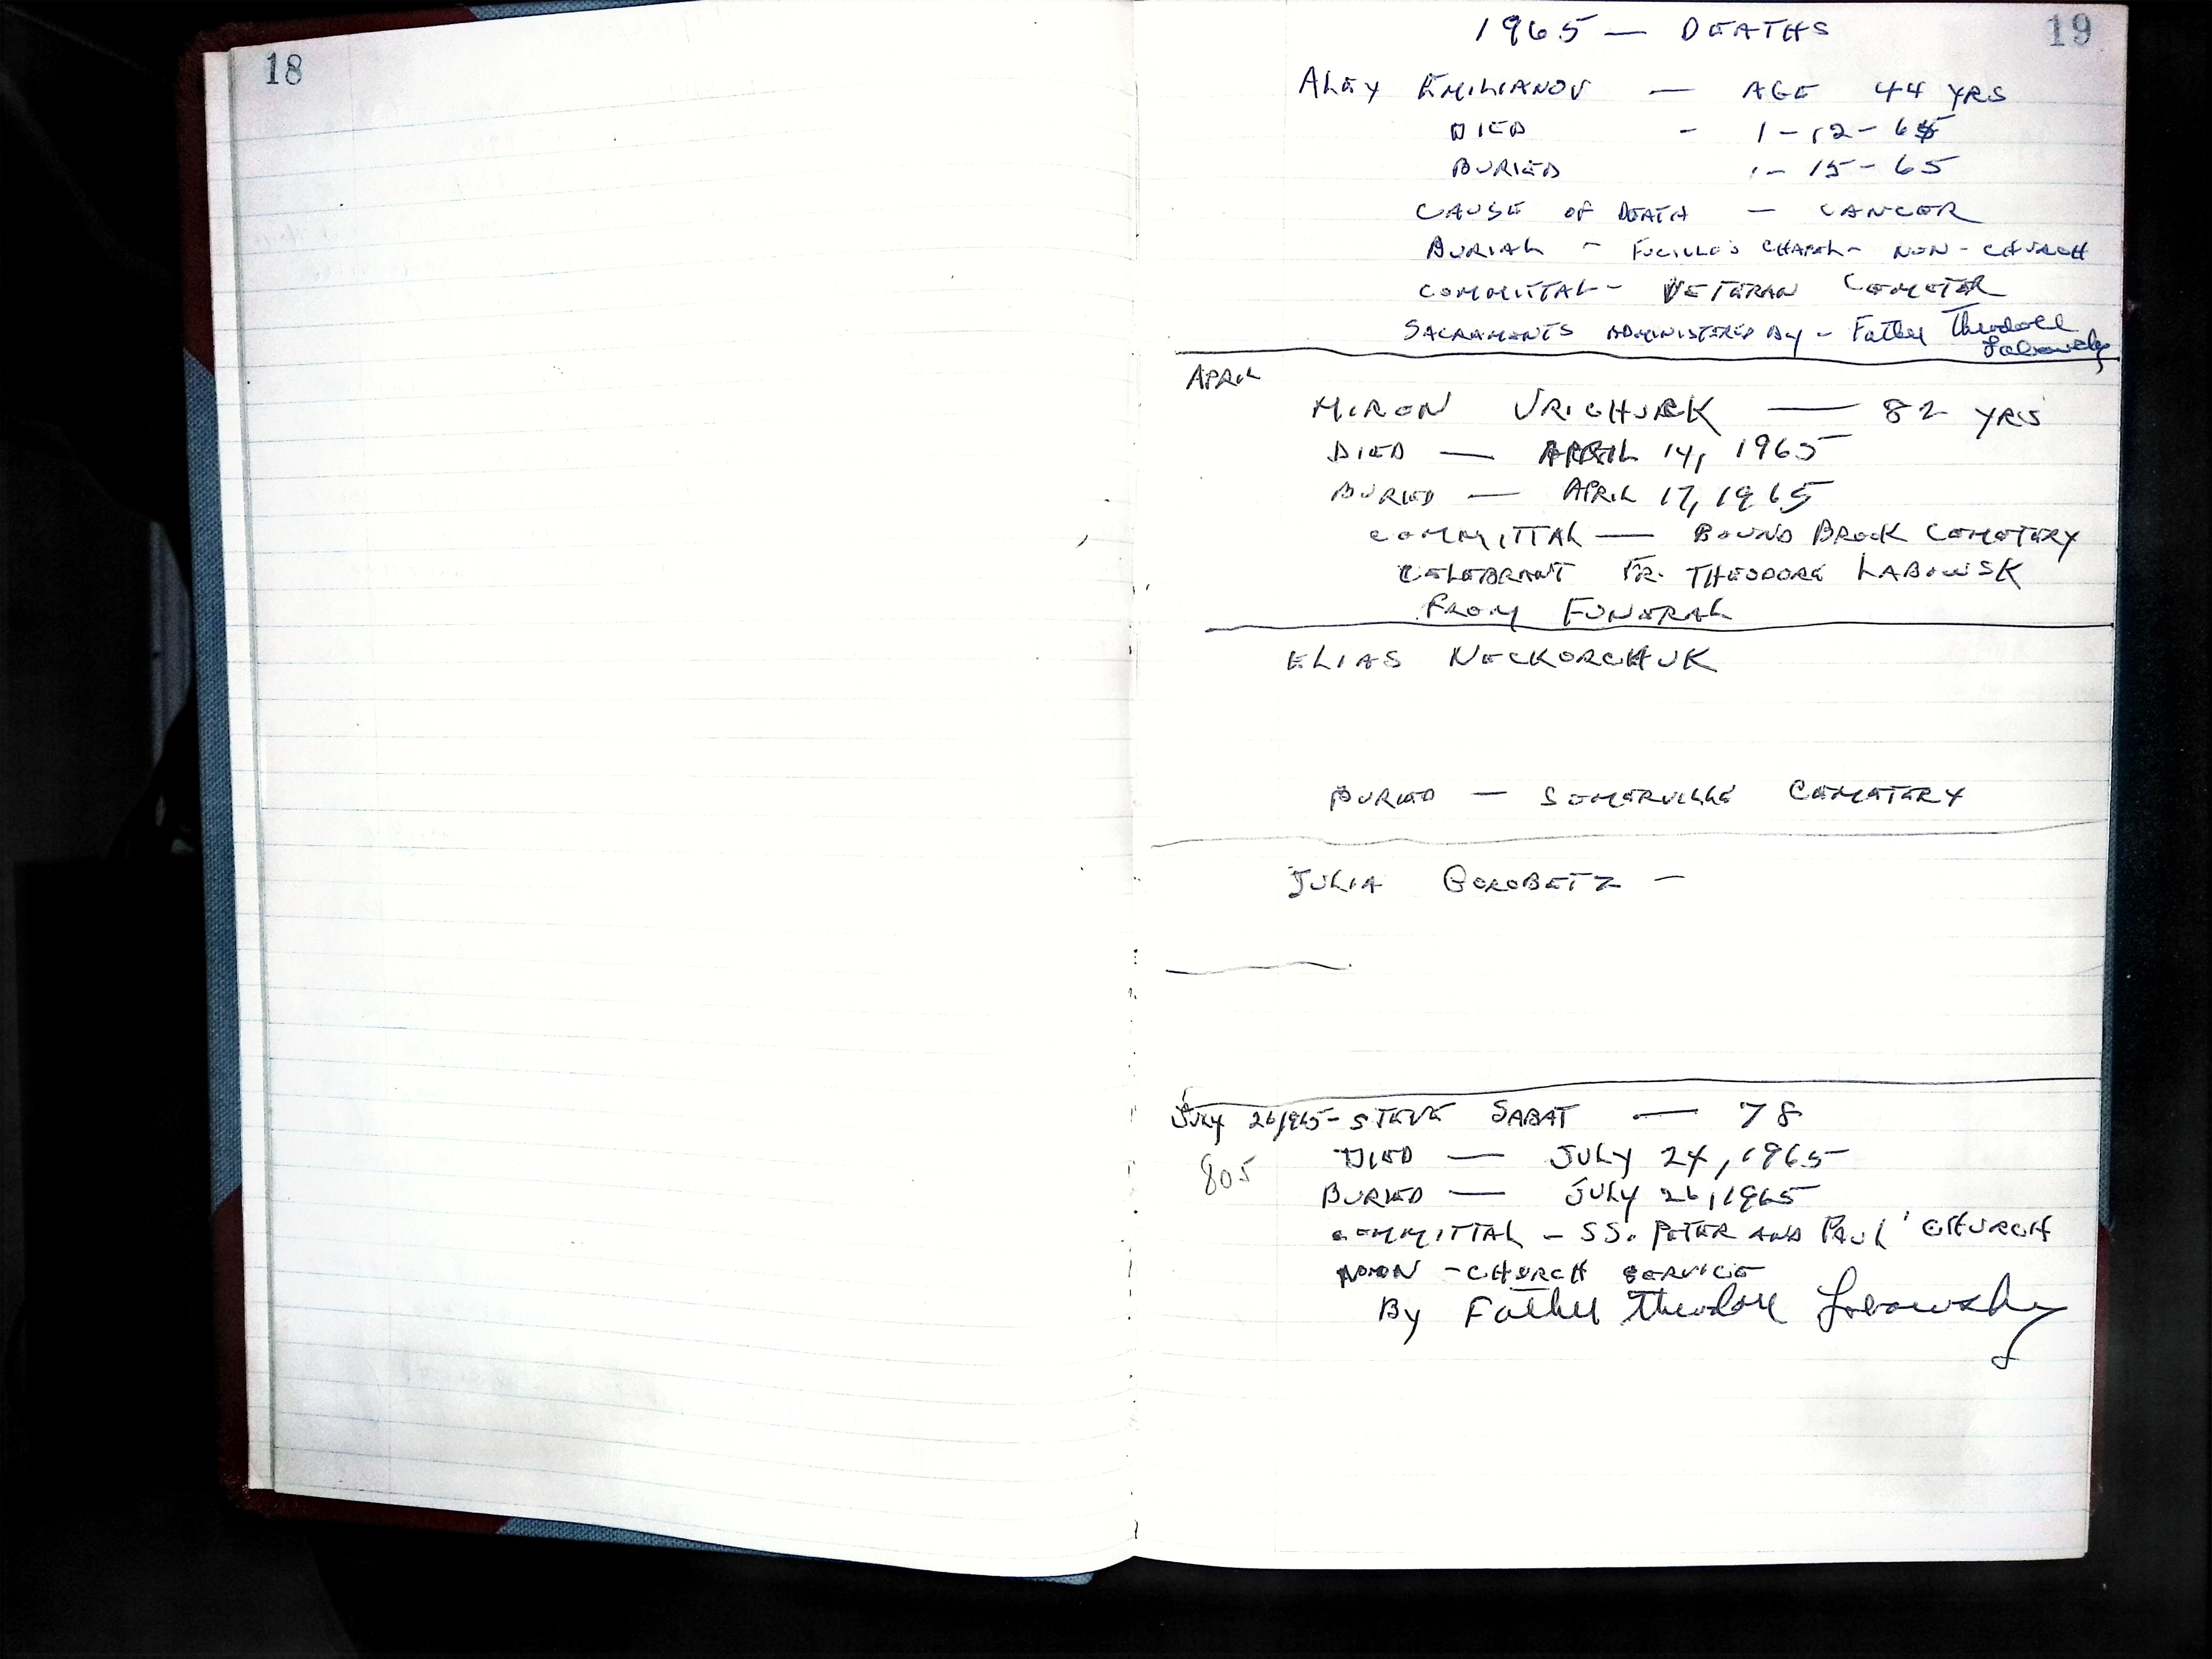 18
19
1965 — DEATHS
ALEX EMILIANOV — AGE 44 YRS
DIED - 1-12-65
BURIED 1-15-65
CAUSE OF DEATH — CANCER
BURIAL - FUCILLO'S CHAPEL - NON-CHURCH
COMMITTAL - VETERAN CEMETER
SACRAMENTS ADMINISTERED BY - Father Theodore
Labowsky
APRIL
MIRON URICHUCK — 82 YRS
DIED — APRIL 14, 1965
BURIED — APRIL 17, 1965
COMMITTAL — BOUND BROOK CEMETERY
CELEBRANT FR. THEODORE LABOWSK
FROM FUNERAL
ELIAS NECKORCHUK
BURIED — SOMERVILLE CEMETERY
JULIA GOROBETZ —
JULY 26/965 - STEVE SABAT — 78
DIED — JULY 24, 1965
805
BURIED — JULY 26, 1965
COMMITTAL - SS. PETER AND PAUL' CHURCH
NON - CHURCH SERVICE
By Father Theodore Labowsky